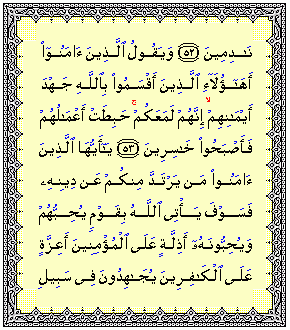 نَـٰدِمِينَ ﴿٥٢﴾ وَيَقُولُ ٱلَّذِينَ ءَامَنُوٓا۟
أَهَـٰٓؤُلَآءِ ٱلَّذِينَ أَقْسَمُوا۟ بِٱللَّهِ جَهْدَ
أَيْمَـٰنِهِمْ ۙ إِنَّهُمْ لَمَعَكُمْ ۚ حَبِطَتْ أَعْمَـٰلُهُمْ
فَأَصْبَحُوا۟ خَـٰسِرِينَ ﴿٥٣﴾ يَـٰٓأَيُّهَا ٱلَّذِينَ
ءَامَنُوا۟ مَن يَرْتَدَّ مِنكُمْ عَن دِينِهِۦ
فَسَوْفَ يَأْتِى ٱللَّهُ بِقَوْمٍ يُحِبُّهُمْ
وَيُحِبُّونَهُۥٓ أَذِلَّةٍ عَلَى ٱلْمُؤْمِنِينَ أَعِزَّةٍ
عَلَى ٱلْكَـٰفِرِينَ يُجَـٰهِدُونَ فِى سَبِيلِ